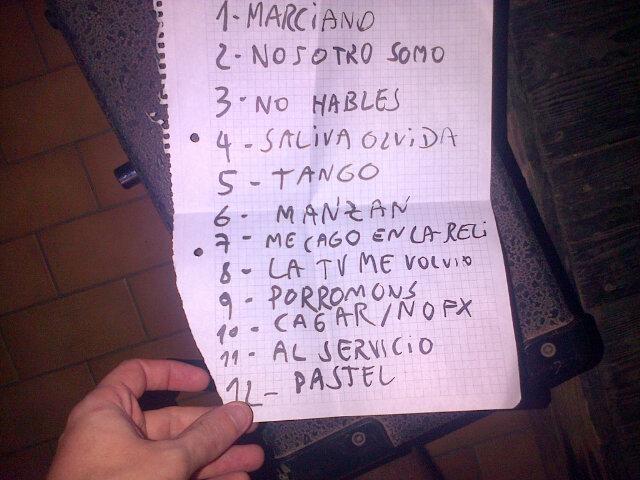 1- MARCIANO
2- NOSOTRO SOMO
3- NO HABLES
4- SALIVA OLVIDA
5- TANGO
6- MANZAN
7- ME CAGO EN LA RELI
8- LA TV ME VOLVIO
9- PORROMONS
10- CAGAR/NOFX
11- AL SERVICIO
12- PASTEL